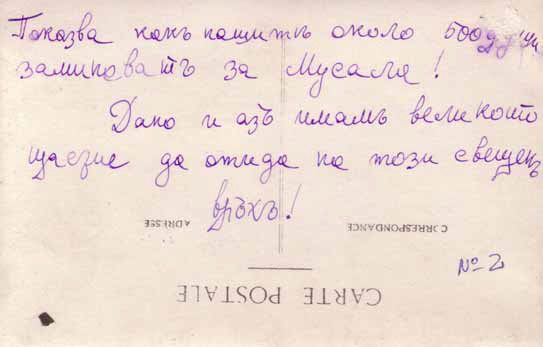 Показва какъ нашитѣ около 500 души
заминоватъ за Мусала!
Дано и азъ имамъ великото
щастие да отида на този свещенъ
връхъ!
ADRESSE
CORRESPONDANCE
№ 2
CARTE POSTALE